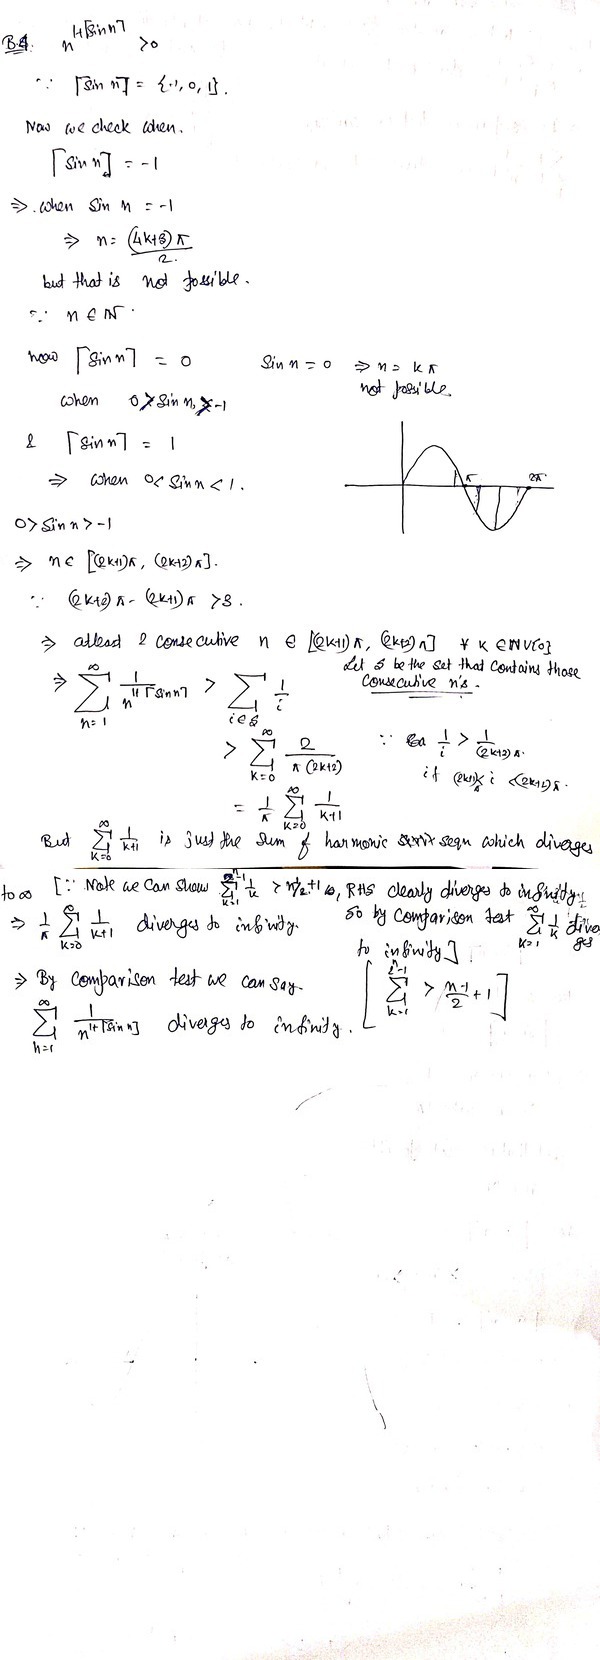 B4. n^{1+⌈sin n⌉} > 0
∵ ⌈sin n⌉ = {-1, 0, 1}.
Now we check when.
⌈sin n⌉ = -1
⇒ when sin n = -1
⇒ n = (4k+3)π / 2.
but that is not possible.
∵ n ∈ ℕ.
now ⌈sin n⌉ = 0 sin n = 0 ⇒ n = kπ
not possible.
when 0 > sin n > -1
& ⌈sin n⌉ = 1
⇒ when 0 < sin n < 1.
π 2π
0 > sin n > -1
⇒ n ∈ [(2k+1)π, (2k+2)π].
∵ (2k+2)π - (2k+1)π > 3.
⇒ atleast 2 consecutive n ∈ [(2k+1)π, (2k+2)π] ∀ k ∈ ℕ∪{0}
Let S be the set that contains those
consecutive n's.
⇒ ∑_{n=1}^{∞} 1/n^{1+⌈sin n⌉} > ∑_{i∈S} 1/i
> ∑_{k=0}^{∞} 2/(π(2k+2)) ∵ 1/i > 1/((2k+2)π)
if (2k+1)π < i < (2k+2)π.
= 1/π ∑_{k=0}^{∞} 1/(k+1)
But ∑_{k=0}^{∞} 1/(k+1) is just the sum of harmonic seqn which diverges
to ∞ [∵ Note we can show ∑_{k=1}^{2^n-1} 1/k > n-1/2+1, RHS clearly diverges to infinity.
⇒ 1/π ∑_{k=0}^{∞} 1/(k+1) diverges to infinity. So by comparison test ∑_{k=1}^{∞} 1/k diverges
to infinity]
⇒ By comparison test we can say.
[∑_{k=1}^{2^n-1} > (n-1)/2 + 1]
∑_{n=1}^{∞} 1/n^{1+⌈sin n⌉} diverges to infinity.